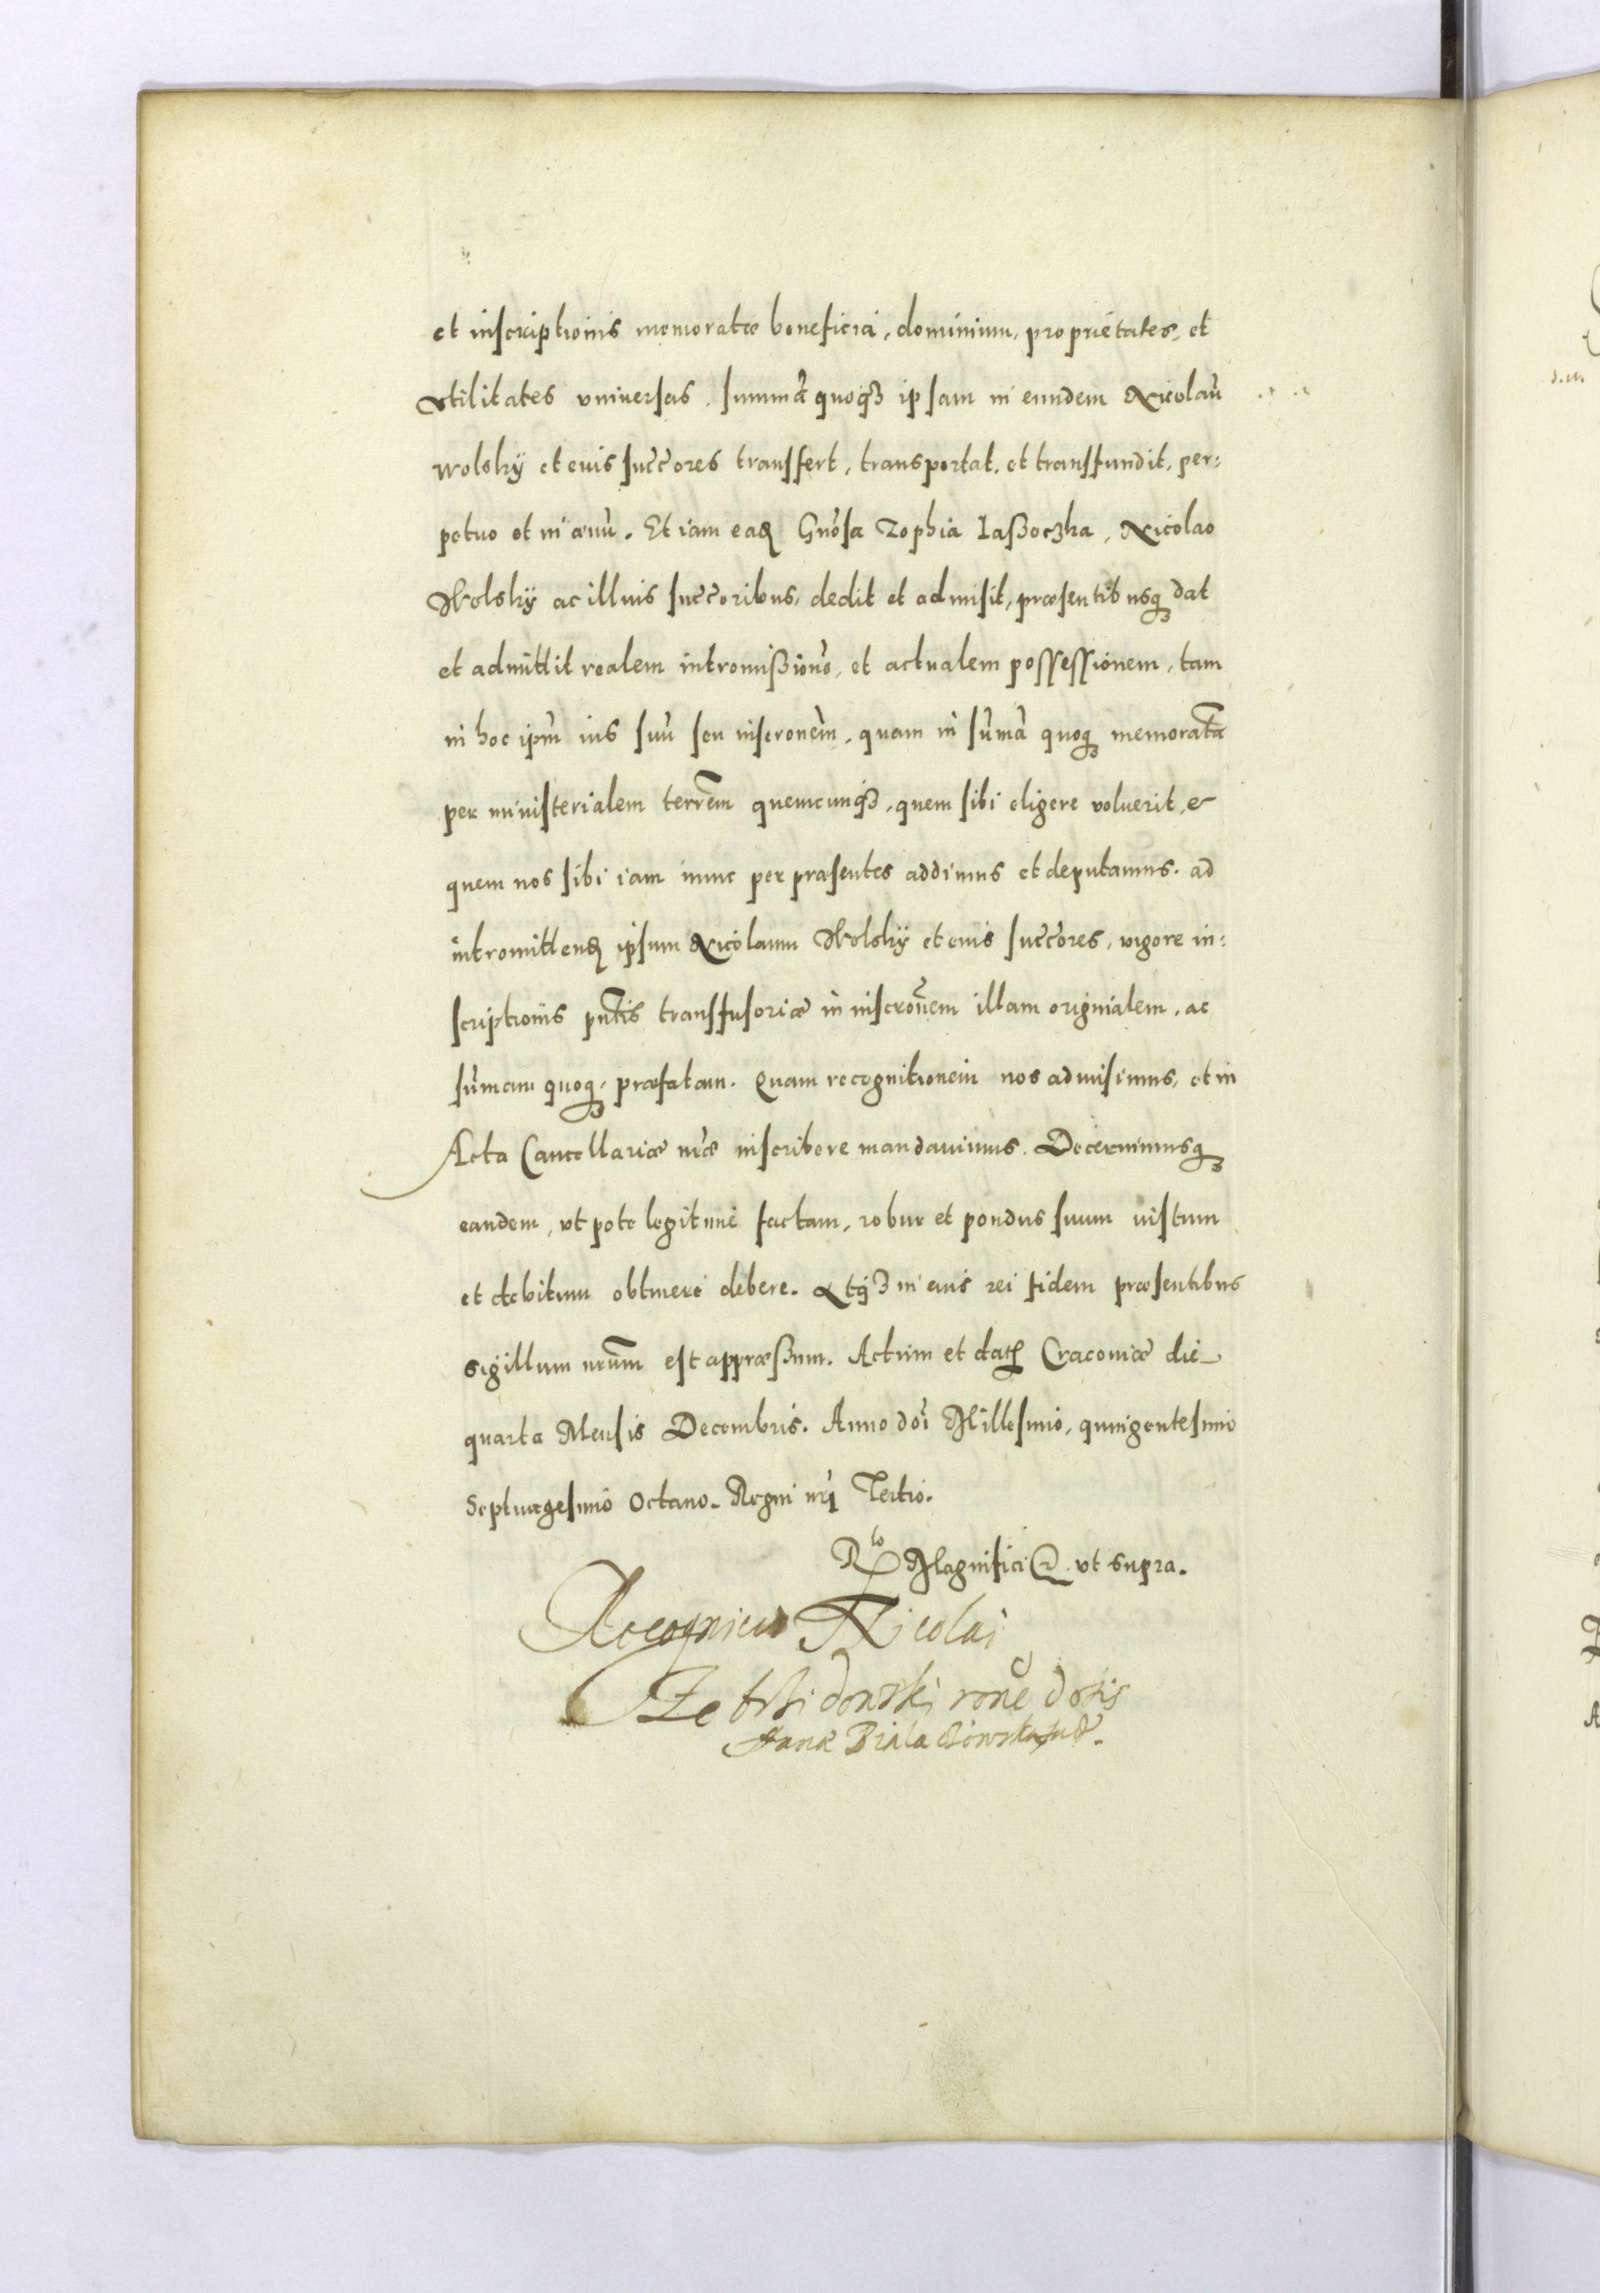 et inscriptionis memoratæ beneficia, dominium, proprietates, et
vtilitates vniuersas, summã quoqȝ ipsam in eundem Nicolaũ
Wolsky et euis succ̃ores transfert, transportat, et transfundit, per:
petuo et in æuũ. Et iam eaꝝ Gñosa Zophia Iaßoczka, Nicolao
Wolsky ac illius succ̃oribus, dedit et admisit, præsentibusqȝ dat
et admittit realem intromißionẽ, et actualem possessionem, tam
in hoc ipm̃ ius suũ seu inscr̃onem, quam in sum̃ã quoqȝ memoratã
per ministerialem terrẽm quemcunqȝ, quem sibi eligere voluerit, &
quem nos sibi iam nunc per præsentes addimus et deputamus, ad
intromittenꝝ ipsum Nicolaum Wolsky et euis succ̃ores, vigore in:
scriptionis pñtis transfusoriæ in inscr̃onem illam originalem, ac
sum̃am quoqȝ præfatam. Quam recognitionem nos admisimus, et in
Acta Cancellariæ nr̃æ inscribere mandauimus. Decernimusqȝ
eandem, vt pote legitimè factam, robur et pondus suum iustum
et debitum obtinere debere. Atqȝ in euis rei fidem præsentibus
sigillum nr̃um est appræßum. Actum et datꝭ Cracouiæ die
quarta Mensis Decembris. Anno doĩ Millesimo, quingentesimo
Septuagesimo Octauo. Regni nr̃i Tertio.
Rlo Magnifici &. vt supra.
Recognicio Nicolai
Zebrzidowski rone dotis